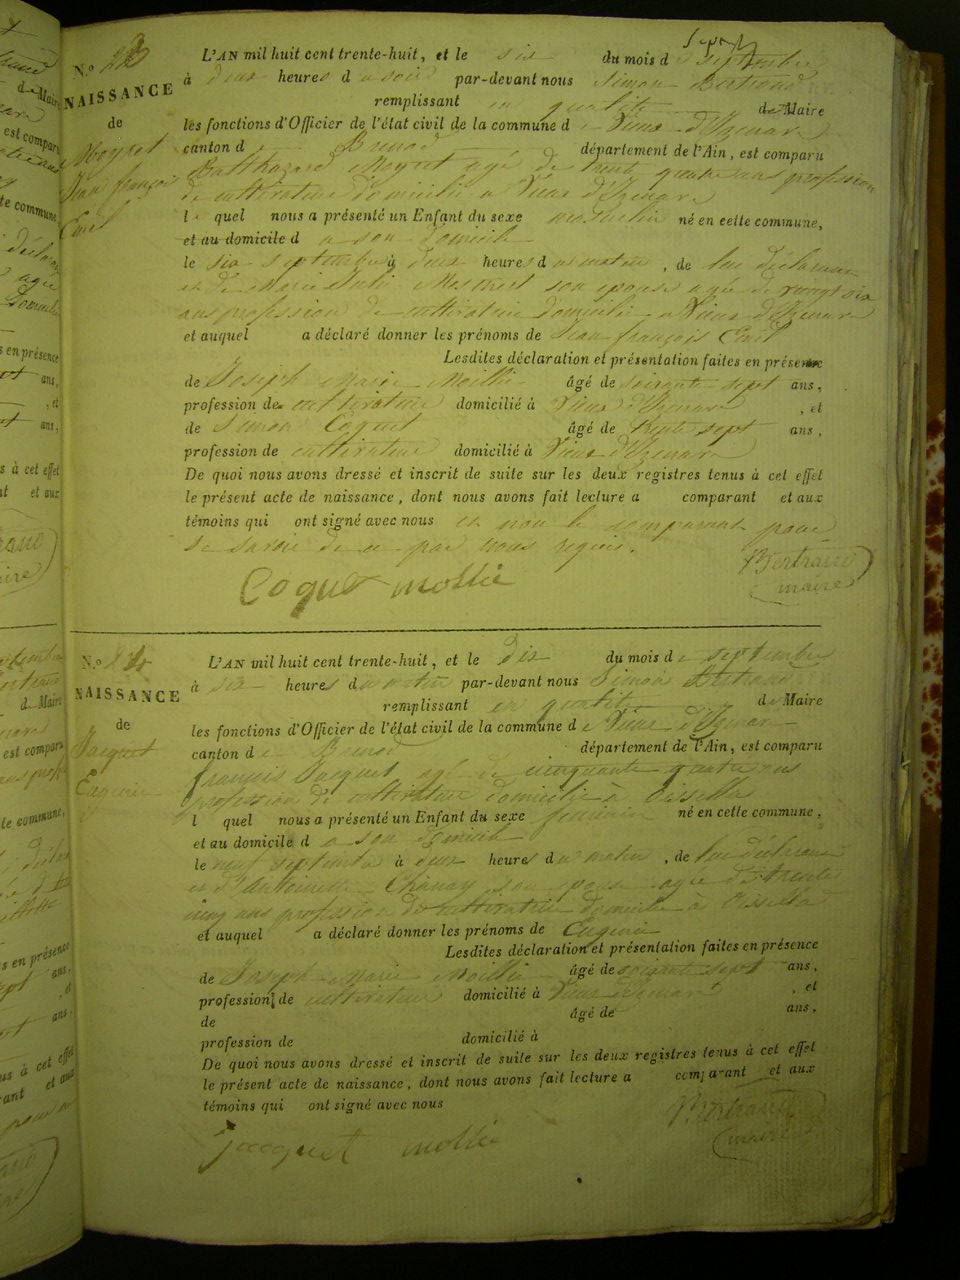 N.º 23
NAISSANCE
de
Moyret
Jean françois
Civil
L'AN mil huit cent trente-huit, et le six du mois d septembre
à deux heures du soir par-devant nous Simon Bertrand
remplissant en qualité de Maire
les fonctions d'Officier de l'état civil de la commune de Vieux d'Izenave
canton d Brenod département de l'Ain, est comparu
Balthazard agé de trente quatre ans profession
de cultivateur domicilié a Vieux d'Izenave
lequel nous a présenté un Enfant du sexe masculin né en cette commune,
et au domicile d a son domicile
le six septembre à deux heures du matin, de lui déclarant
et de Marie son épouse agée de vingt six
ans profession de cultivatrice domicilié a Vieux d'Izenave
et auquel a déclaré donner les prénoms de Jean françois
Lesdites déclaration et présentation faites en présence
de Joseph Marie Mollie âgé de soixante sept ans,
profession de cultivateur domicilié à Vieux d'Izenave, et
de Simon Coquet âgé de trente sept ans,
profession de cultivateur domicilié à Vieux d'Izenave
De quoi nous avons dressé et inscrit de suite sur les deux registres tenus à cet effet
le présent acte de naissance, dont nous avons fait lecture a comparant et aux
témoins qui ont signé avec nous et non le comparant pour
de ce par nous requis.
Coquet Mollie Bertrand
maire
N.º 24
NAISSANCE
de
Jacquet
Eugénie
L'AN mil huit cent trente-huit, et le dix du mois de septembre
à six heures du matin par-devant nous Simon Bertrand
remplissant en qualité de Maire
les fonctions d'Officier de l'état civil de la commune de Vieux d'Izenave
canton de Brenod département de l'Ain, est comparu
françois Jacquet agé de cinquante quatre ans
profession de cultivateur domicilié à
l quel nous a présenté un Enfant du sexe feminin né en cette commune,
et au domicile d a son domicile
le neuf septembre à deux heures du matin, de lui déclarant
et d'antoinette Chanay son épouse agée de trente
cinq ans profession de cultivatrice domicilié a
et auquel a déclaré donner les prénoms de Eugénie
Lesdites déclaration et présentation faites en présence
de Joseph Marie Mollie âgé de soixante sept ans,
profession de cultivateur domicilié à Vieux d'Izenave, et
de âgé de ans,
profession de domicilié à
De quoi nous avons dressé et inscrit de suite sur les deux registres tenus à cet effet
le présent acte de naissance, dont nous avons fait lecture a comparant et aux
témoins qui ont signé avec nous
Jacquet Mollie Bertrand
maire